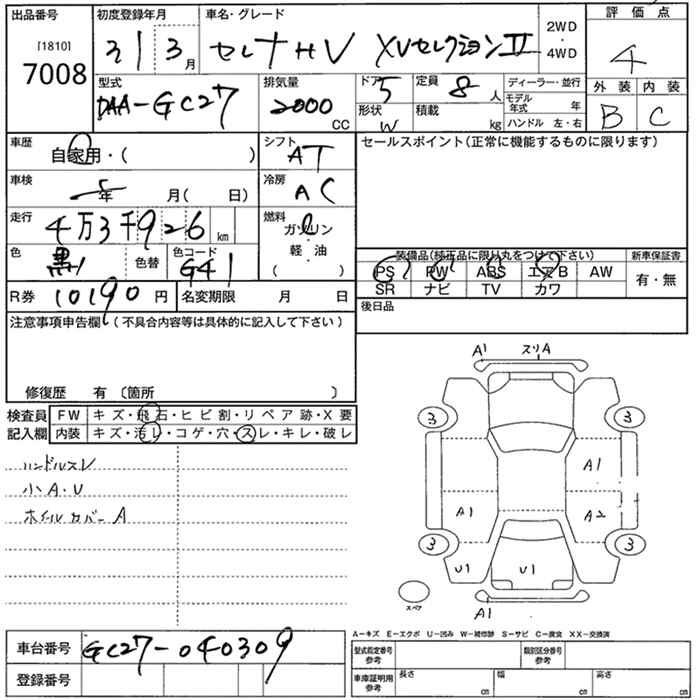 出品番号
[1810]
7008
初度登録年月
31 3月
車名・グレード
セレナHV XVセレクションII
2WD
・
4WD
評価点
4
型式
DAA-GC27
排気量
2000
CC
ドア 5
形状 W
定員 8 人
積載 kg
ディーラー・並行
モデル年式 年
ハンドル 左・右
外装 内装
B C
車歴 自家用・( )
シフト AT
セールスポイント(正常に機能するものに限ります)
車検 年 月( 日)
冷房 AC
走行 4万3千926km
燃料
ガソリン
・
軽油
( )
色 黒 色替
色コード G41
装備品(純正品に限り丸をつけて下さい)
PS PW ABS エアB AW
SR ナビ TV カワ
新車保証書
有・無
R券 10190円
名変期限 月 日
後日品
注意事項申告欄(不具合内容等は具体的に記入して下さい)
修復歴 有 〔箇所 〕
検査員記入欄
FW キズ・飛石・ヒビ割・リペア跡・X要
内装 キズ・汚レ・コゲ・穴・スレ・キレ・破レ
ハンドルスレ
小A・U
ホイールカバーA
A1 スリA
3 3
A1
A1 A2
3 3
U1 U1
スペア
A1
A−キズ E−エクボ U−凹み W−補修跡 S−サビ C−腐食 XX−交換済
車台番号 GC27-040309
登録番号
型式指定番号
参考
類別区分番号
参考
車庫証明用
参考
長さ cm
幅 cm
高さ cm